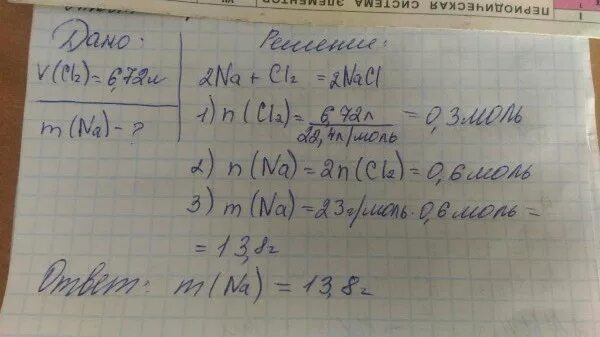 ПЕРИОДИЧЕСКАЯ СИСТЕМА ЭЛЕМЕНТОВ
Дано:
V(Cl₂)=6,72л
m(Na)-?
Решение:
2Na+Cl₂=2NaCl
1) n(Cl₂)=6,72л/22,4л/моль=0,3моль
2) n(Na)=2n(Cl₂)=0,6моль
3) m(Na)=23г/моль·0,6моль=
=13,8г
Ответ: m(Na)=13,8г